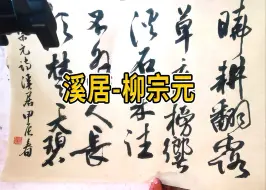 溪居-柳宗元
曉耕翻露
草夜榜響
溪石来往
不逢人長
歌楚天碧
宗元詩溪居甲辰春